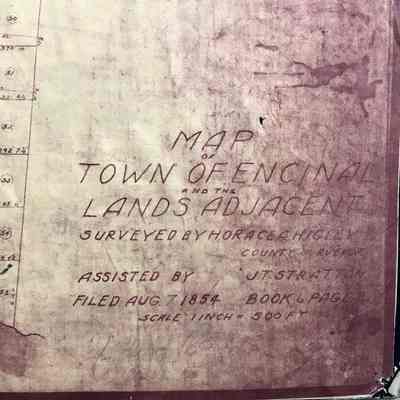 MAP
OF
TOWN OF ENCINAL
AND THE
LANDS ADJACENT
SURVEYED BY HORACE A HIGLEY
COUNTY SURVEYOR
ASSISTED BY J.T. STRATTON
FILED AUG. 7 1854 BOOK 6 PAGE
SCALE 1 INCH = 500 FT